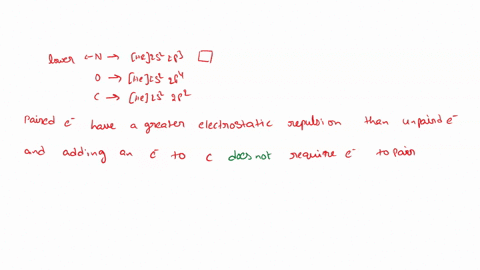 lower ← N → [He] 2s² 2p³
O → [He] 2s² 2p⁴
C → [He] 2s² 2p²
Paired e⁻ have a greater electrostatic repulsion than unpaired e⁻
and adding an e⁻ to C does not require e⁻ to pair